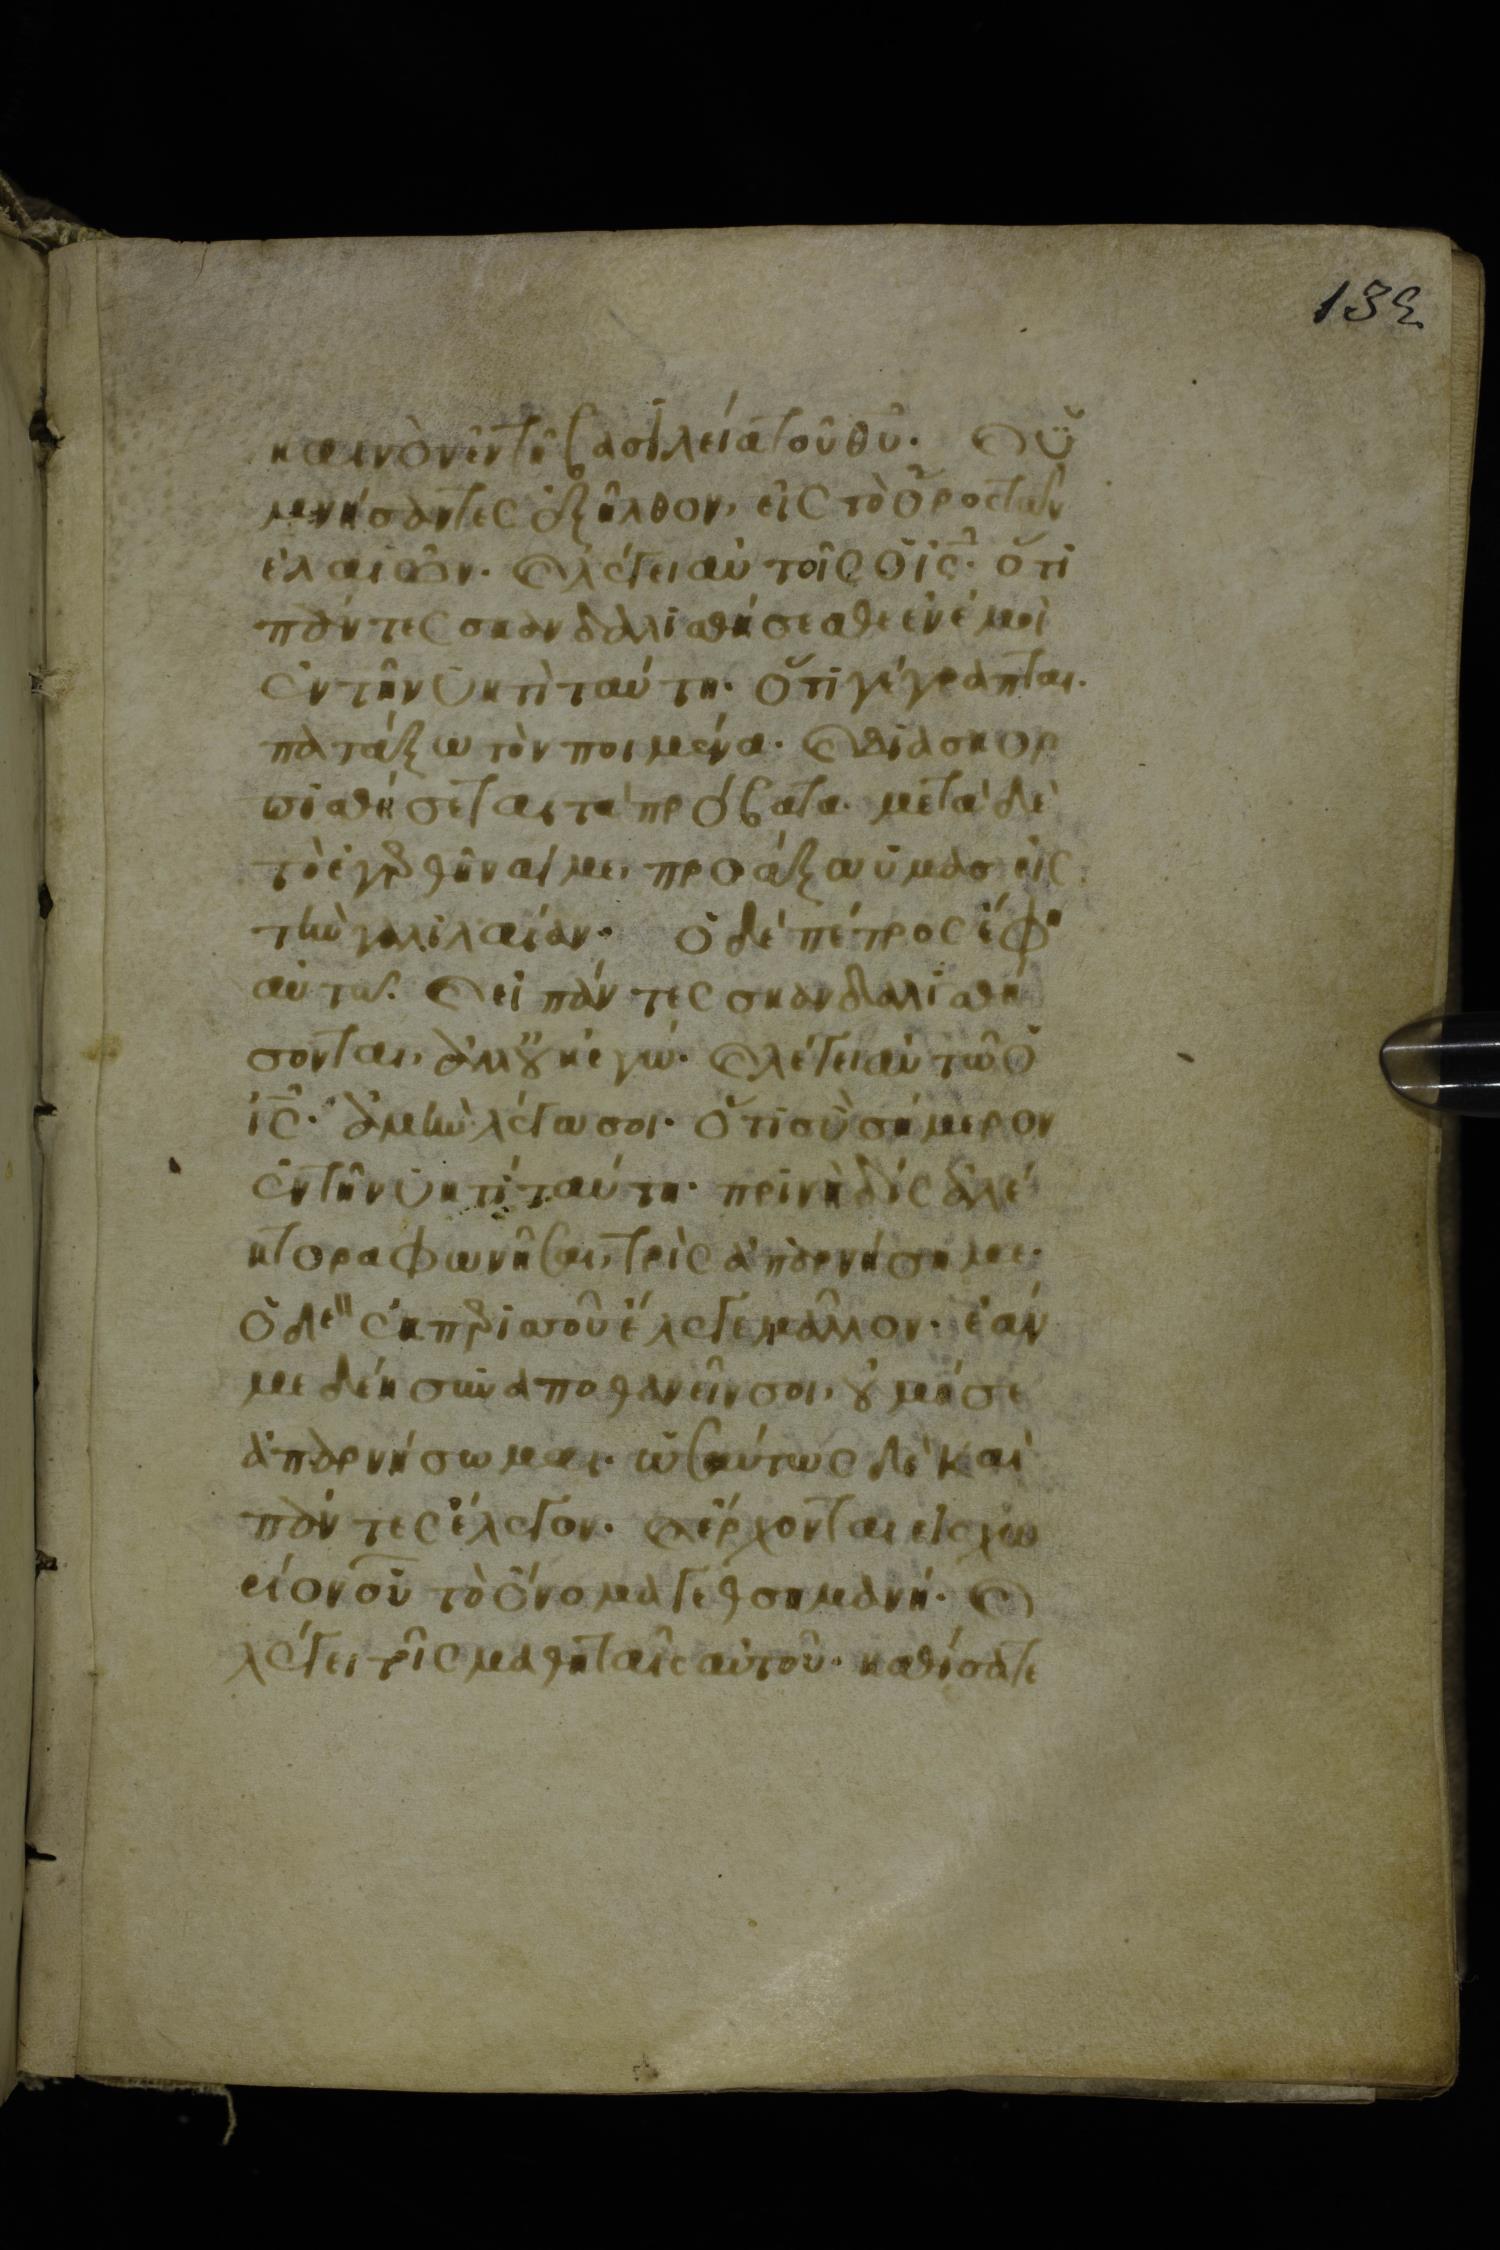 132
καινὸν ἐν τῇ βασιλείᾳ τοῦ θυ̅. Καὶ ὑ
μνήσαντες ἐξῆλθον, εἰς τὸ ὄρος τῶν
ἐλαιῶν. Καὶ λέγει αὐτοῖς ὁ ις̅. ὅτι
πάντες σκανδαλισθήσεσθε ἐν ἐμοὶ
ἐν τῇ νυκτὶ ταύτη. ὅτι γέγραπται.
πατάξω τὸν ποιμένα. Καὶ διασκορ
πισθήσεται τὰ πρόβατα. μετὰ δὲ
τὸ ἐγερθῆναί με, προάξω ὑμᾶσ εἰς
τὴν γαλιλαίαν. ὁ δὲ πέτρος ἔφη
αὐτῶ. Καὶ εἰ πάντες σκανδαλισθή
σονται, ἀλλ' οὐκ ἐγώ. Καὶ λέγει αὐτῶ ὁ
ις̅. ἀμὴν λέγω σοι. ὅτι σὺ σήμερον
ἐν τῇ νυκτὶ ταύτη. πρὶν ἢ δὶς ἀλέ
κτορα φωνῆσαι, τρὶς ἀπαρνήση με.
ὁ δὲ ἐκπερισσοῦ ἔλεγε μᾶλλον. ἐάν
με δέη συναποθανεῖν σοι, οὐ μή σε
ἀπαρνήσωμαι. ὡσαύτως δὲ καὶ
πάντες ἔλεγον. Καὶ ἔρχονται εἰς χω
ρίον οὗ τὸ ὄνομα γεθσημανή. Καὶ
λέγει τοῖς μαθηταῖς αὐτοῦ. καθίσατε